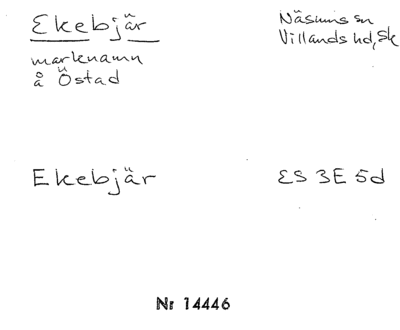 Ekebjär
Näsums sn
Villands hd, Sk
marknamn
å Östad
Ekebjär
ES 3E 5d
Nr 14446